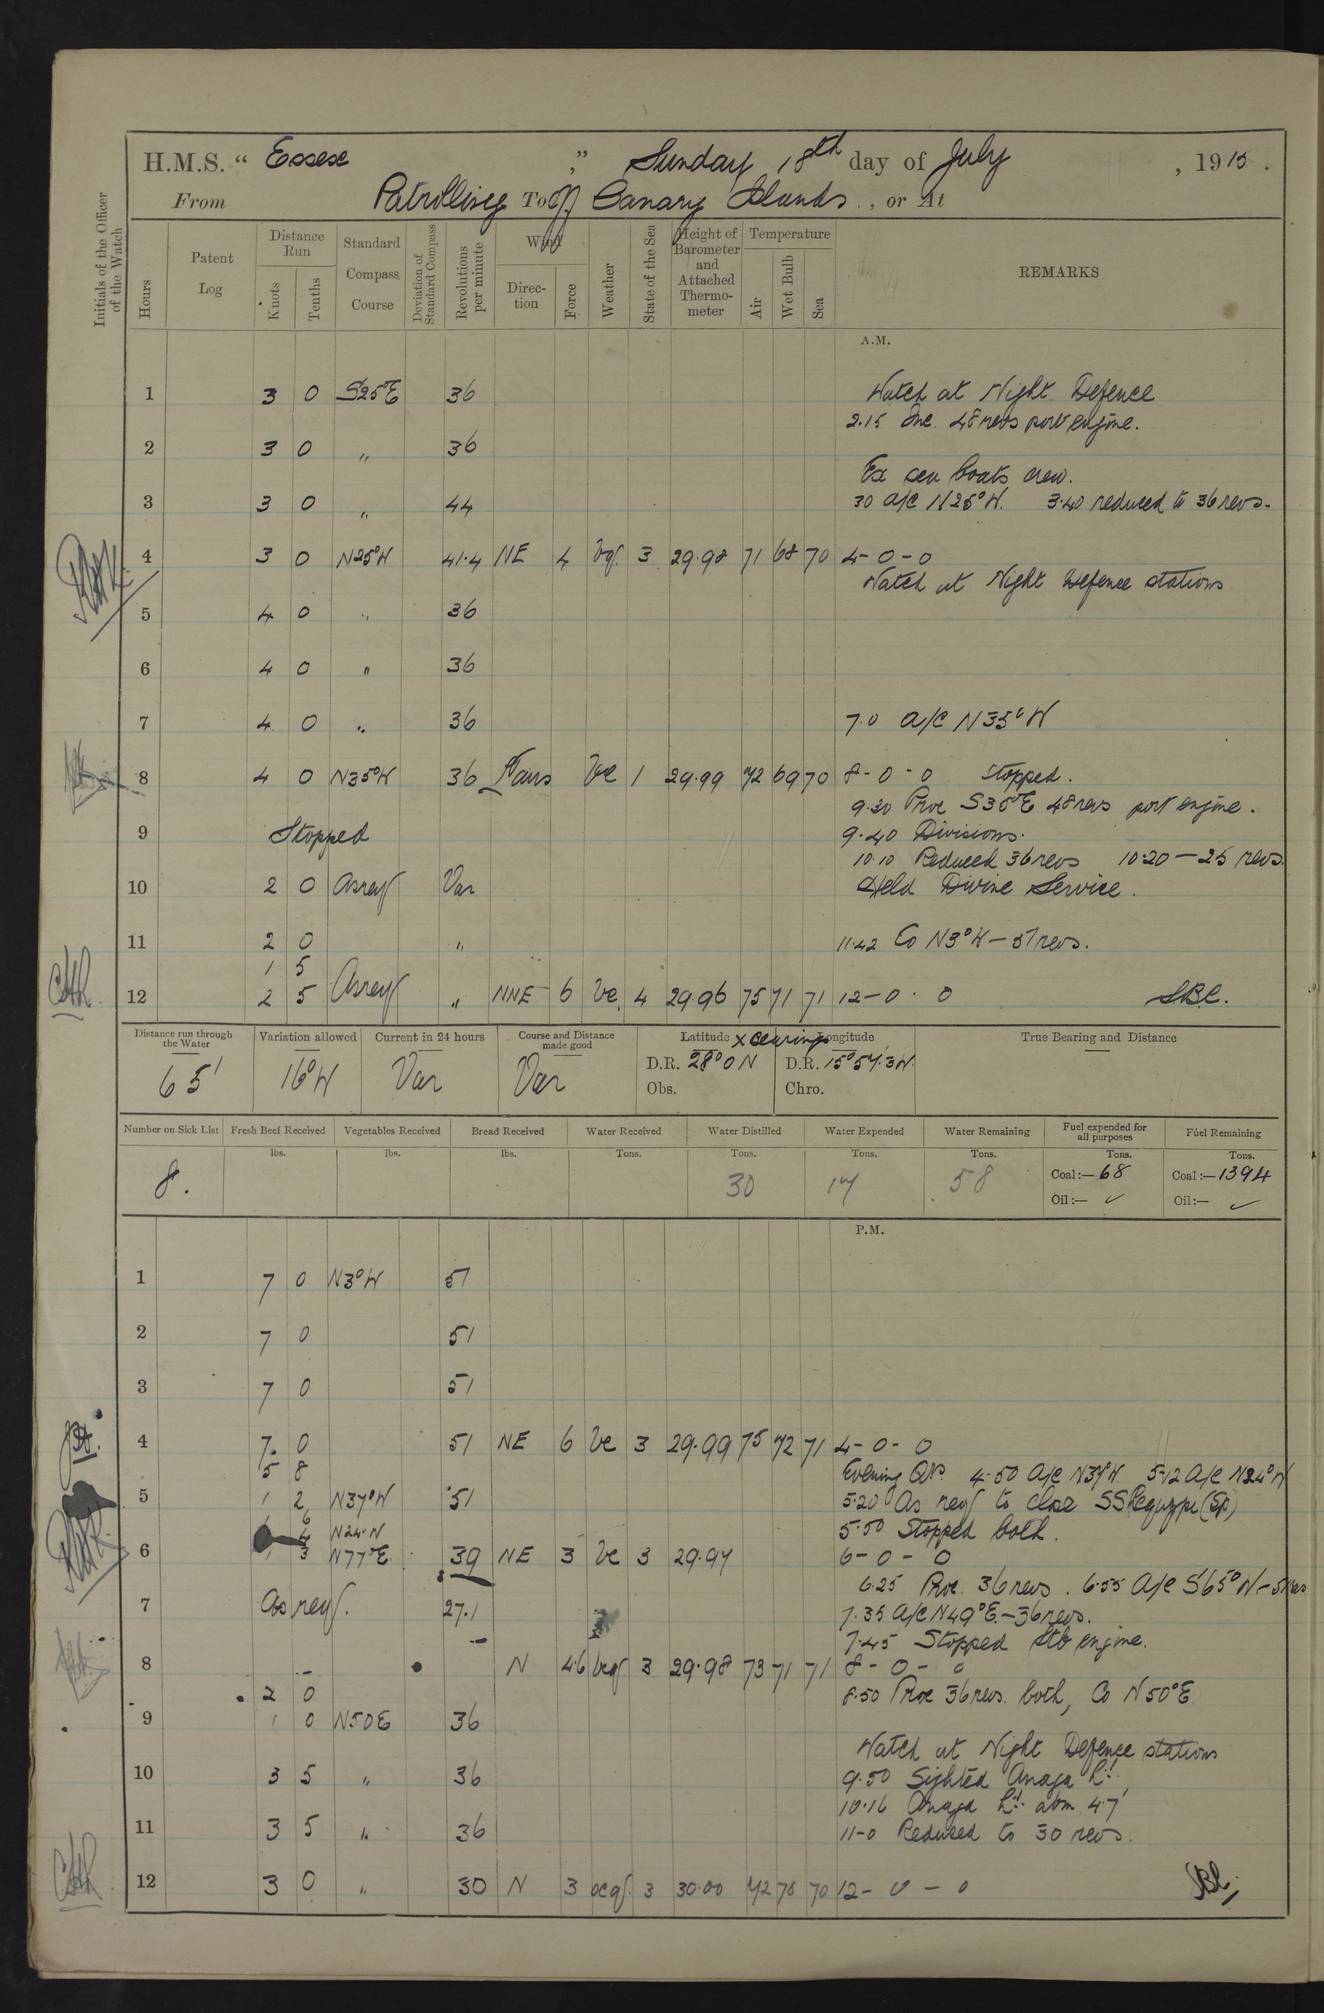 H.M.S. “ Essex ,” Sunday 18th day of July , 1915 .
From Patrolling To off Canary Islands , or At
Initials of the Officer of the Watch
Hours
Patent Log
Distance Run
Knots
Tenths
Standard Compass Course
Deviation of Standard Compass
Revolutions per minute
Wind
Direction
Force
Weather
State of the Sea
Height of Barometer and Attached Thermometer
Temperature
Air
Wet Bulb
Sea
REMARKS
A.M.
1 3 0 S25°E 36 Watch at Night Defence
2.15 Inc. 48 revs port engine.
2 3 0 " 36
Ex sea boats crew.
3 3 0 " 44 30 A/C N25°W. 3.40 reduced to 36 revs.
4 3 0 N25°W 41.4 NE 4 3 29.98 71 68 70 4-0-0
Watch at Night Defence stations
5 4 0 " 36
6 4 0 " 36
7 4 0 " 36 7.0 A/C N35°W
8 4 0 N35°W 36 Airs bc 1 29.99 72 69 70 8-0-0 Stopped.
9.30 Proc S35°E 48 revs port engine.
9 Stopped 9.40 Divisions.
10.10 Reduced 36 revs 10.20 — 25 revs.
10 2 0 As req Var Held Divine Service.
11 2 0 " 11.42 Co N3°W — 51 revs.
1 5
12 2 5 As req " NNE 6 bc 4 29.96 75 71 71 12-0-0 SBC.
Distance run through the Water 65'
Variation allowed 16°W
Current in 24 hours Var
Course and Distance made good Var
Latitude x bearings Longitude
D.R. 28°0N D.R. 15°57.3W.
Obs. Chro.
True Bearing and Distance
Number on Sick List 8.
Fresh Beef Received lbs.
Vegetables Received lbs.
Bread Received lbs.
Water Received Tons.
Water Distilled Tons. 30
Water Expended Tons. 17
Water Remaining Tons. 58
Fuel expended for all purposes Tons. Coal:— 68 Oil:— ✓
Fuel Remaining Tons. Coal:— 1394 Oil:— ✓
P.M.
1 7 0 N3°W 51
2 7 0 51
3 7 0 51
4 7 0 51 NE 6 bc 3 29.99 75 72 71 4-0-0
5 8 Evening Qrs. 4.50 A/C N37°W 5.12 A/C N24°W
5 1 2 N37°W 51 5.20 As req to close SS (Sp)
6 N24°W 5.50 Stopped both.
6 1 3 N77°E 39 NE 3 bc 3 29.97 6-0-0
6.25 Proc 36 revs. 6.55 A/C S65°W – 51 revs
7 As req. 27.1 7.35 A/C N49°E. – 36 revs.
7.45 Stopped Stb engine.
8 – N 4.6 bcq 3 29.98 73 71 71 8-0-0
2 0 8.50 Proc 36 revs. both, Co N50°E
9 1 0 N50E 36
Watch at Night Defence stations
10 3 5 " 36 9.50 Sighted Anaga Lt.
10.16 Anaga Lt. abm 4.7'
11 3 5 " 36 11-0 Reduced to 30 revs.
12 3 0 " 30 N 3 ocq 3 30.00 72 70 70 12-0-0 SBC.